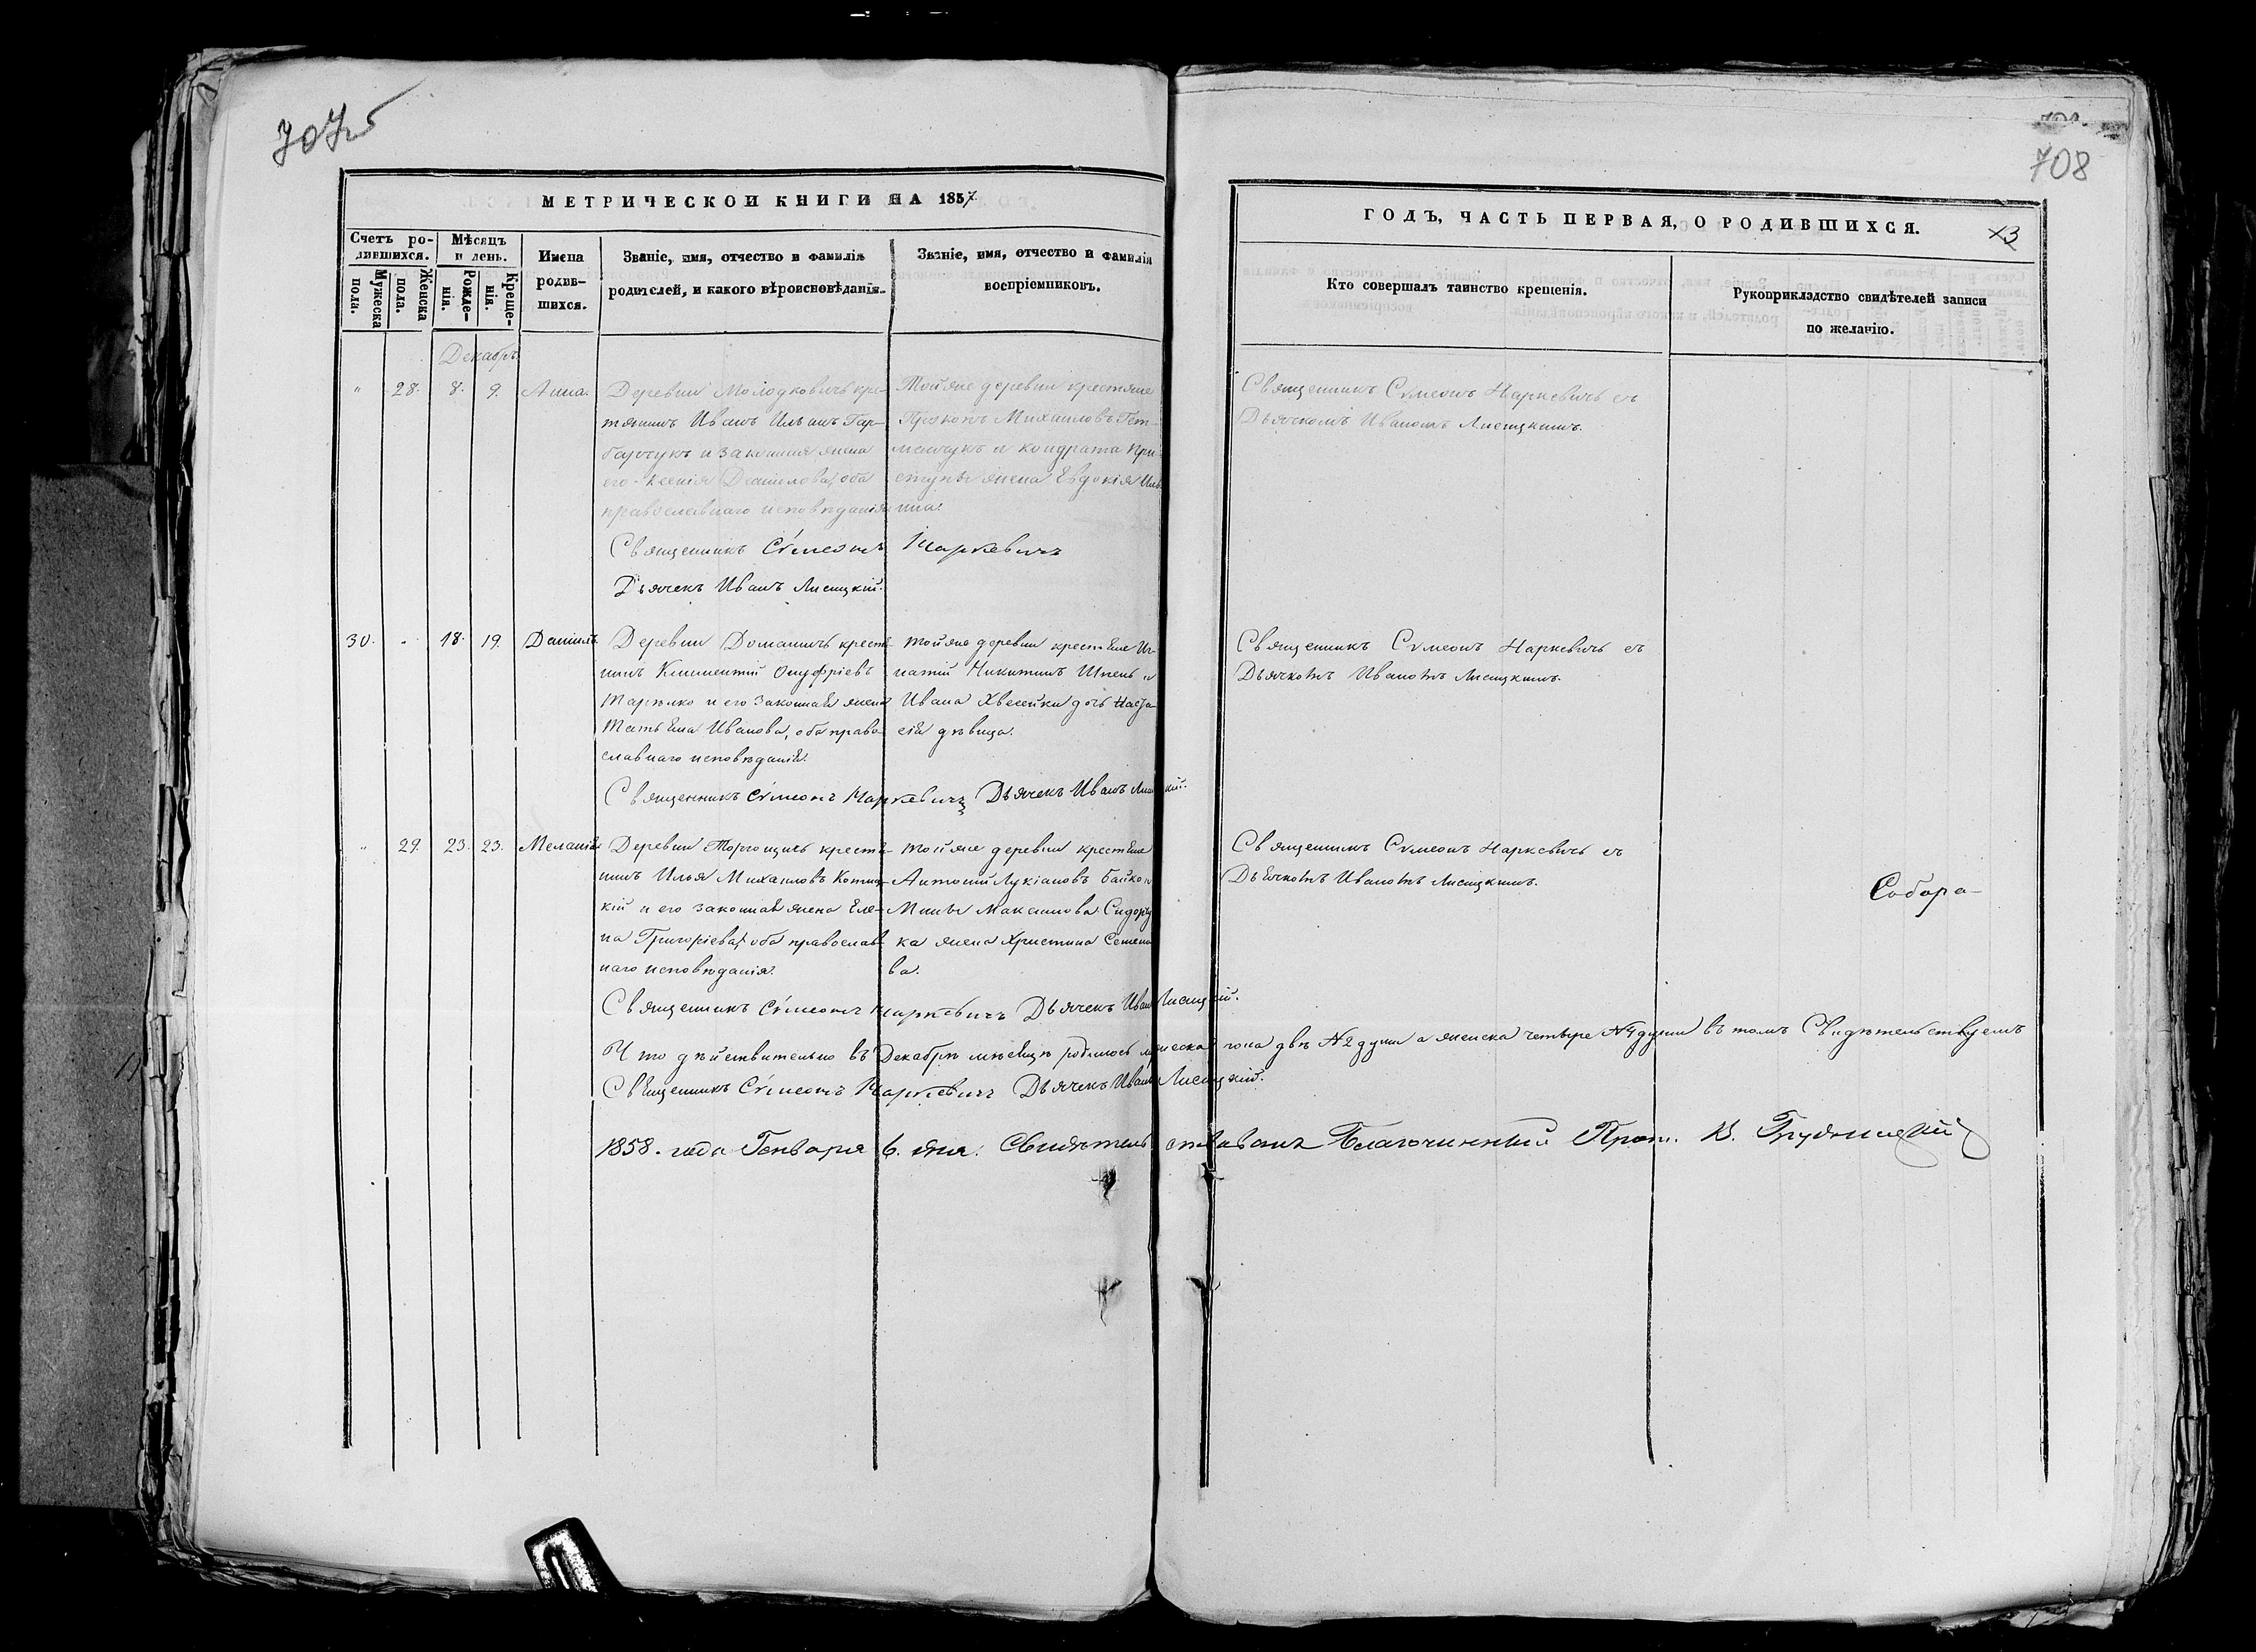 707об
708
МЕТРИЧЕСКОЙ КНИГИ НА 1857
ГОДЪ, ЧАСТЬ ПЕРВАЯ, О РОДИВШИХСЯ.
Счетъ ро-
дившихся.
Мужеска
пола.
Женска
пола.
Мѣсяцъ
и день.
Рожде-
нія.
Креще-
нія.
Имена
родив-
шихся.
Званіе, имя, отчество и фамилія
родителей, и какого вѣроисповѣданія.
Званіе, имя, отчество и фамилія
воспріемниковъ.
Кто совершалъ таинство крещенія.
Рукоприкладство свидѣтелей записи
по желанію.
Декабрь
" 28. 8. 9. Анна.
Деревни Молодковичь кре-
тянинъ Иванъ Ильинъ Гар-
барчукъ и законная жена
его Ксенія Данилова, оба
православнаго исповѣданія
Тойже деревни крестяне
Прокопъ Михаиловъ Гет-
манчукъ и Кондрата При
ступы жена Евдокія Иль
ина.
Священникъ Сѵмеонъ Наркевичь съ
Дьячкомъ Иваномъ Лисицкимъ.
Священникъ Сѵмеонъ Наркевичъ
Дьячекъ Иванъ Лисицкій.
30. " 18. 19. Даніилъ.
Деревни Доманичь крестя-
нинъ Климентій Онуфріевъ
и его законная жена
Татьяна Иванова, оба право-
славнаго исповѣданія.
Тойже деревни крестяне Иг-
натій Никитинъ и
Ивана дочь Наста-
сія дѣвица.
Священникъ Сѵмеонъ Наркевичь съ
Дьячкомъ Иваномъ Лисицкимъ.
Священникъ Сѵмеонъ Наркевичъ Дьячекъ Иванъ Лисицкій.
" 29. 23. 23. Меланія
Деревни крестя-
нинъ Илья Михаиловъ
кій и его законная жена Еле-
на Григоріева, оба православ-
наго исповѣданія.
Тойже деревни крестяне
Антоній Лукіановъ Байко и
Мины Максимова Сидорчу
ка жена Христина Семено
ва.
Священникъ Сѵмеонъ Наркевичь съ
Дьячкомъ Иваномъ Лисицкимъ.
Собора-
Священникъ Сѵмеонъ Наркевичъ Дьячекъ Иванъ Лисицкій.
Что дѣйствительно въ Декабрѣ мѣсяцѣ родилось мужеска пола двѣ №2 души а женска четыре №4 души въ томъ Свидѣтельствуемъ
Священникъ Сѵмеонъ Наркевичъ Дьячекъ Иванъ Лисицкій.
1858. года Генваря 6. дня. Свидѣтельствовалъ Благочинный Прот. В. Грудницкій